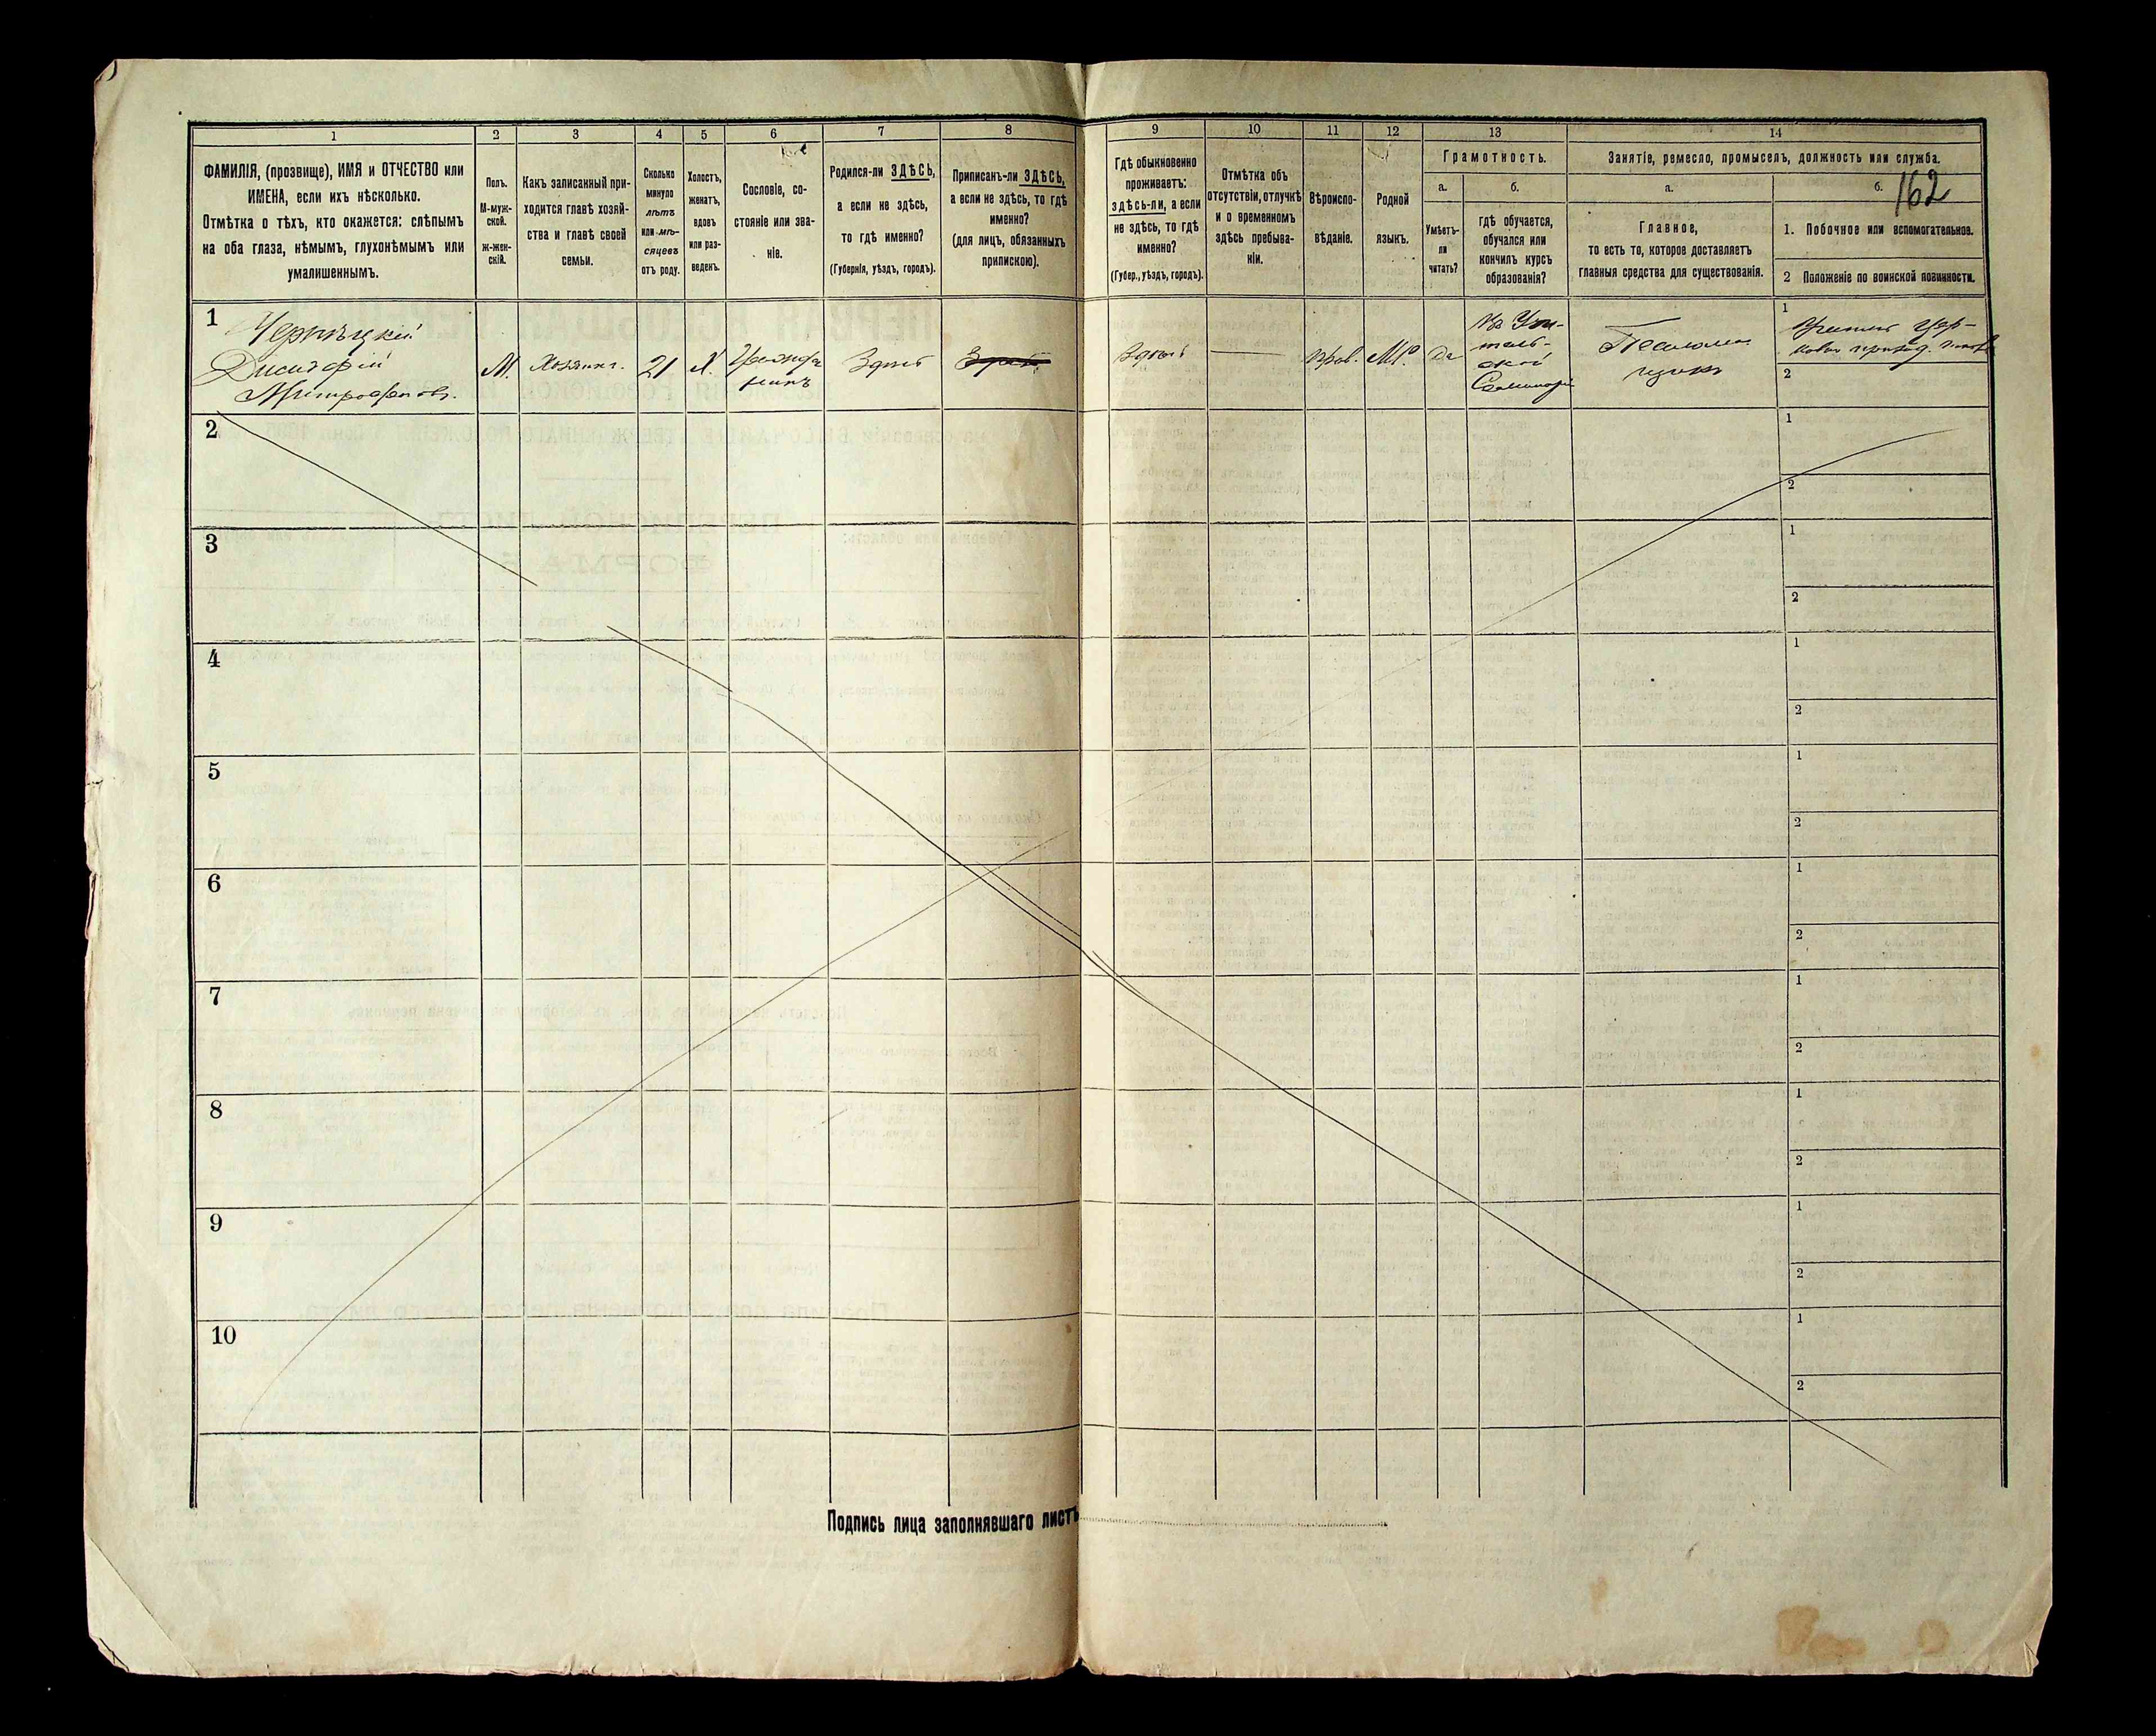 1 2 3 4 5 6 7 8 9 10 11 12 13 14
ФАМИЛІЯ, (прозвище), ИМЯ и ОТЧЕСТВО или
ИМЕНА, если ихъ нѣсколько.
Отмѣтка о тѣхъ, кто окажется: слѣпымъ
на оба глаза, нѣмымъ, глухонѣмымъ или
умалишеннымъ.
Полъ.
М-муж-
ской.
ж-жен-
скій.
Какъ записанный при-
ходится главѣ хозяй-
ства и главѣ своей
семьи.
Сколько
минуло
лѣтъ
или мѣ-
сяцевъ
отъ роду.
Холостъ,
женатъ,
вдовъ
или раз-
веденъ.
Сословіе, со-
стояніе или зва-
ніе.
Родился-ли ЗДѢСЬ,
а если не здѣсь,
то гдѣ именно?
(Губернія, уѣздъ, городъ).
Приписанъ-ли ЗДѢСЬ,
а если не здѣсь, то гдѣ
именно?
(для лицъ, обязанныхъ
припискою).
Гдѣ обыкновенно
проживаетъ:
здѣсь-ли, а если
не здѣсь, то гдѣ
именно?
(Губер., уѣздъ, городъ).
Отмѣтка объ
отсутствіи, отлучкѣ
и о временномъ
здѣсь пребыва-
ніи.
Вѣроиспо-
вѣданіе.
Родной
языкъ.
Грамотность.
а.
Умѣетъ-
ли
читать?
б.
гдѣ обучается,
обучался или
кончилъ курсъ
образованія?
Занятіе, ремесло, промыселъ, должность или служба.
а.
Главное,
то есть то, которое доставляетъ
главныя средства для существованія.
б.
162
1. Побочное или вспомогательное.
2 Положеніе по воинской повинности.
1
Чернѣцкій
Досиѳей
Митрофановъ.
М.
Хозяинъ.
21
Х.
Гражда
нинъ
Здѣсь
Здѣсь
Здѣсь
Прав.
М.Р.
Да
Въ Учи-
тель-
ской
Семинаріи
Псаломщикъ
1
Учитель Цер-
ковн приход. школы
2
2
1
2
3
1
2
4
1
2
5
1
2
6
1
2
7
1
2
8
1
2
9
1
2
10
1
2
Подпись лица заполнявшаго листъ